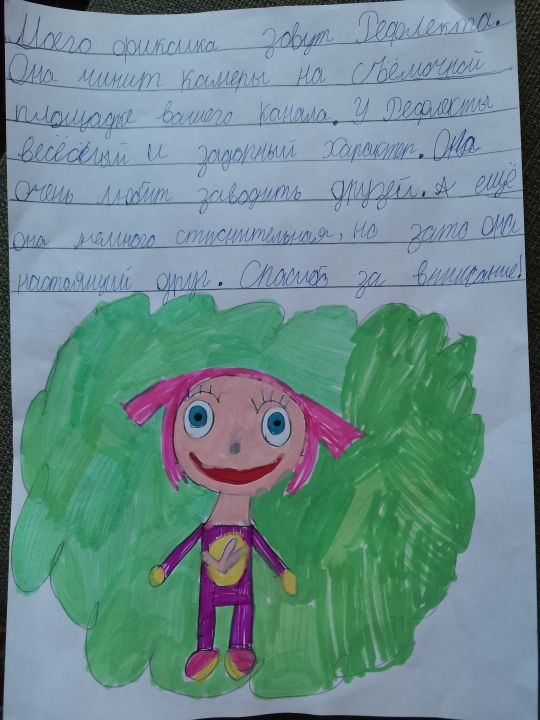 Моего фиксика зовут Рефлекта.
Она чинит камеры на съёмочной
площадке вашего канала. У Рефлекты
весёлый и задорный характер. Она
очень любит заводить друзей. А ещё
она немного стиснительная, но зато она
настоящий друг. Спасибо за внимание!